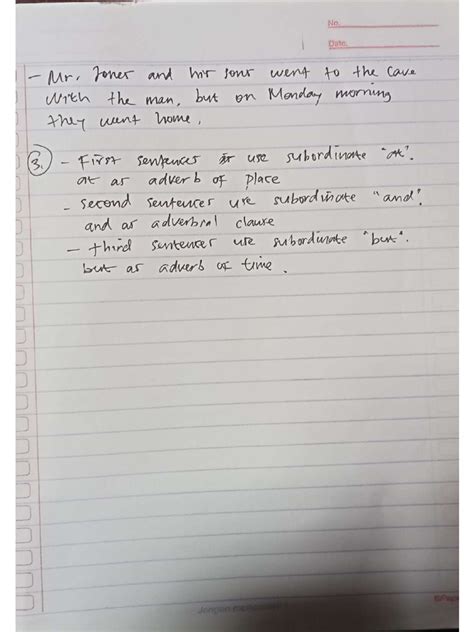 No.
Date.
- Mr. Jones and his sons went to the cave
with the man, but on Monday morning
they went home.
3. - First sentences use subordinate "at".
at as adverb of place
- second sentences use subordinate "and".
and as adverbial clause
- third sentences use subordinate "but".
but as adverb of time.